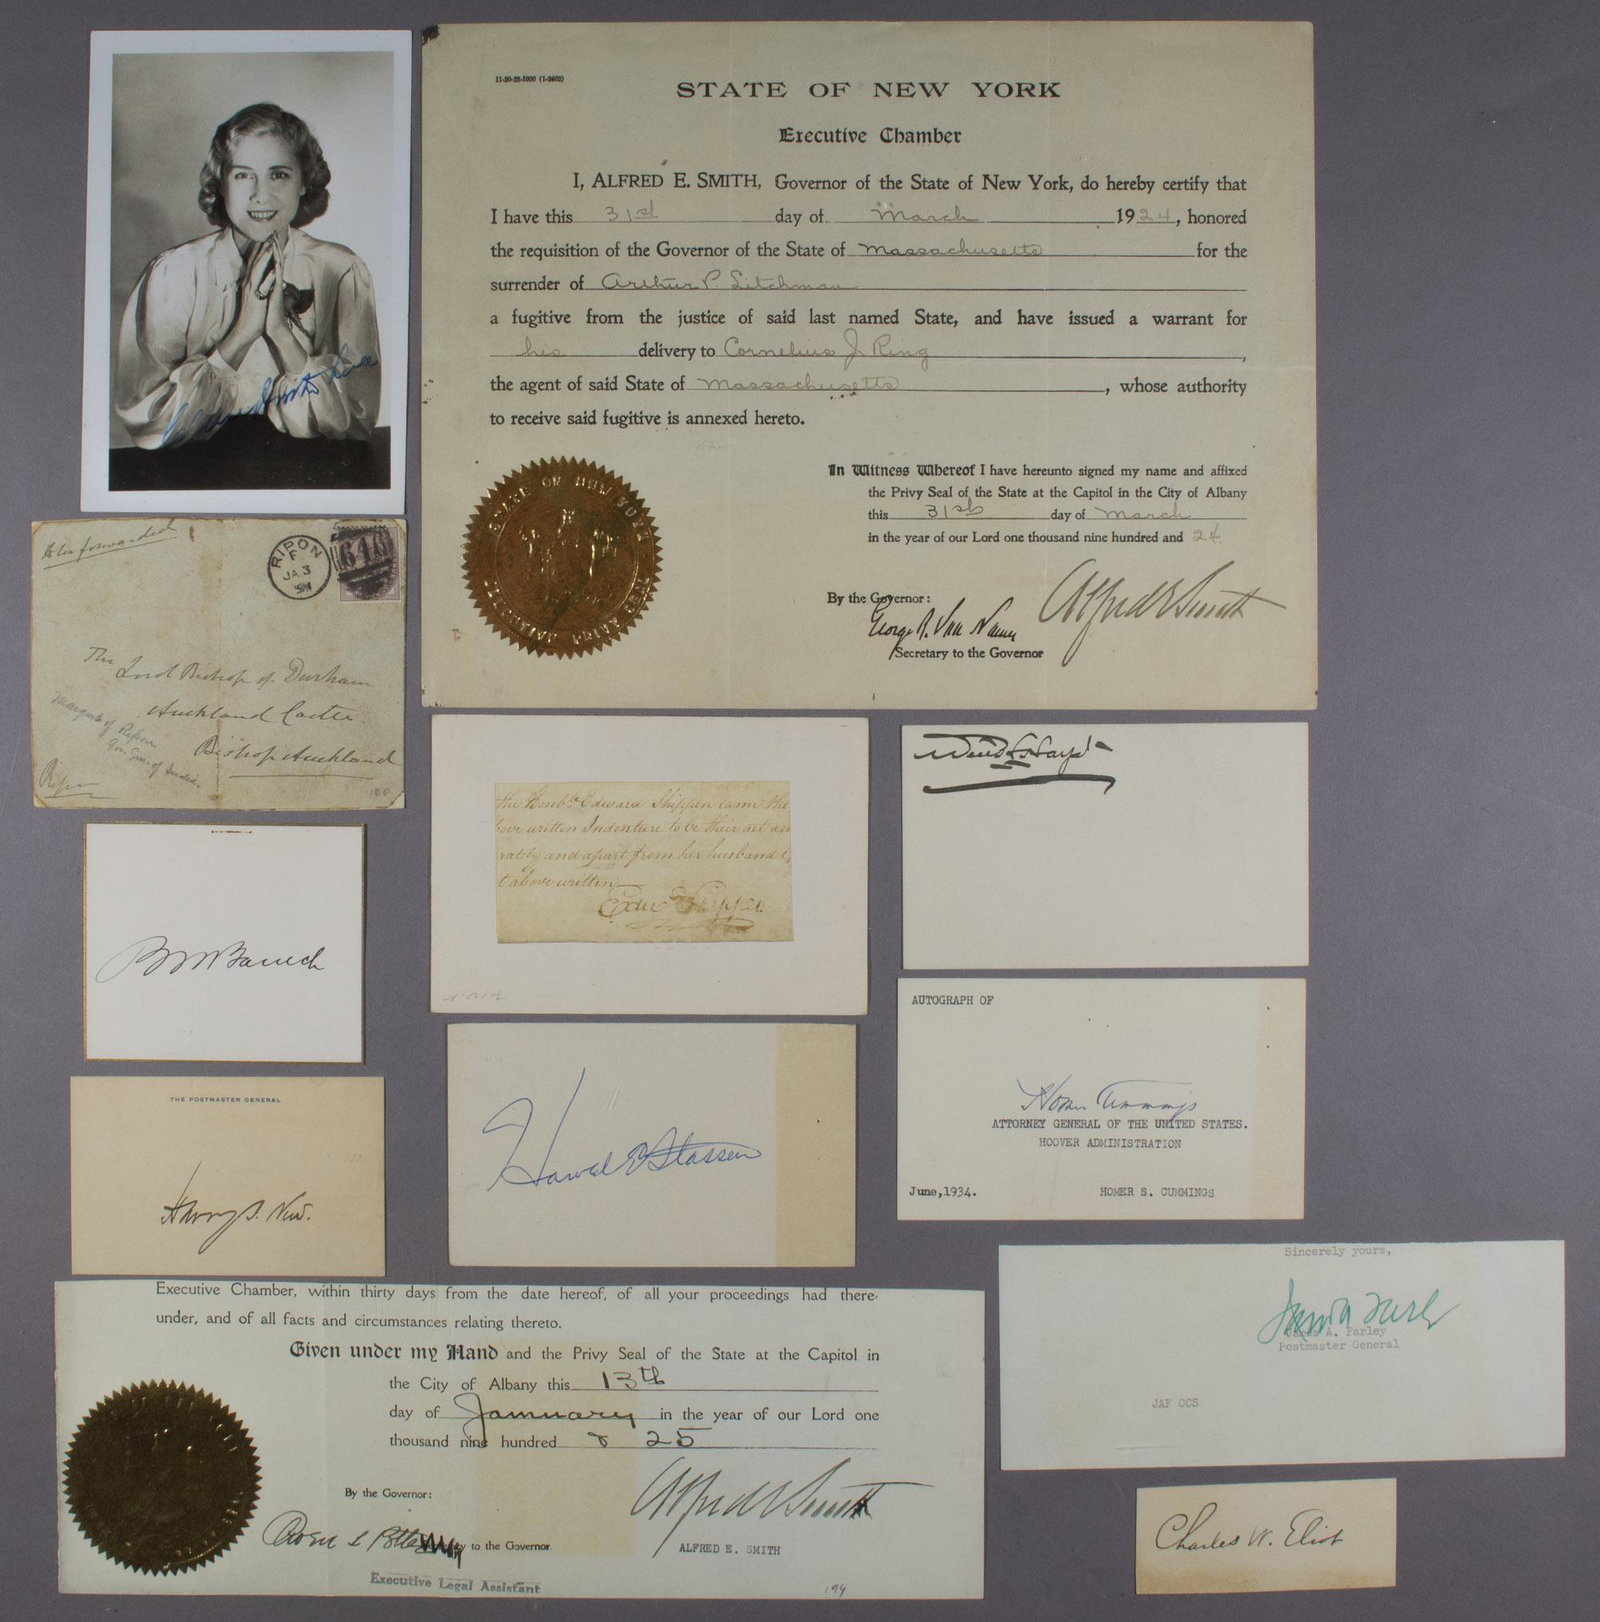 11-20-22-1000 (1-2402)
STATE OF NEW YORK
Executive Chamber
I, ALFRED E. SMITH, Governor of the State of New York, do hereby certify that
I have this 31st day of March 1924, honored
the requisition of the Governor of the State of Massachusetts for the
surrender of Arthur P. Litchman
a fugitive from the justice of said last named State, and have issued a warrant for
his delivery to Cornelius J. Ring,
the agent of said State of Massachusetts, whose authority
to receive said fugitive is annexed hereto.
In Witness Whereof I have hereunto signed my name and affixed
the Privy Seal of the State at the Capitol in the City of Albany
this 31st day of March
in the year of our Lord one thousand nine hundred and 24.
By the Governor:
George R. Van Namee
Secretary to the Governor
Alfred E Smith
To be forwarded
RIPON
JA 3
646
The
Lord Bishop of Durham
Auckland Castle
Bishop Auckland
Marquis of Ripon
Gov. Gen. of India.
Ripon
100
the Honble Edward Shippen came the
ove written Indenture to be their act an
rately and apart from her husband
t above written
Edw Shippen
B M Baruch
THE POSTMASTER GENERAL
Harry S. New.
Harold E Stassen
AUTOGRAPH OF
Homer Cummings
ATTORNEY GENERAL OF THE UNITED STATES.
HOOVER ADMINISTRATION
June,1934. HOMER S. CUMMINGS
Sincerely yours,
James A. Farley
Postmaster General
JAF OCS
Executive Chamber, within thirty days from the date hereof, of all your proceedings had there-
under, and of all facts and circumstances relating thereto.
Given under my Hand and the Privy Seal of the State at the Capitol in
the City of Albany this 13th
day of Jannuary in the year of our Lord one
thousand nine hundred & 25
By the Governor:
to the Governor
Executive Legal Assistant
Alfred E Smith
ALFRED E. SMITH
199
Charles W. Eliot